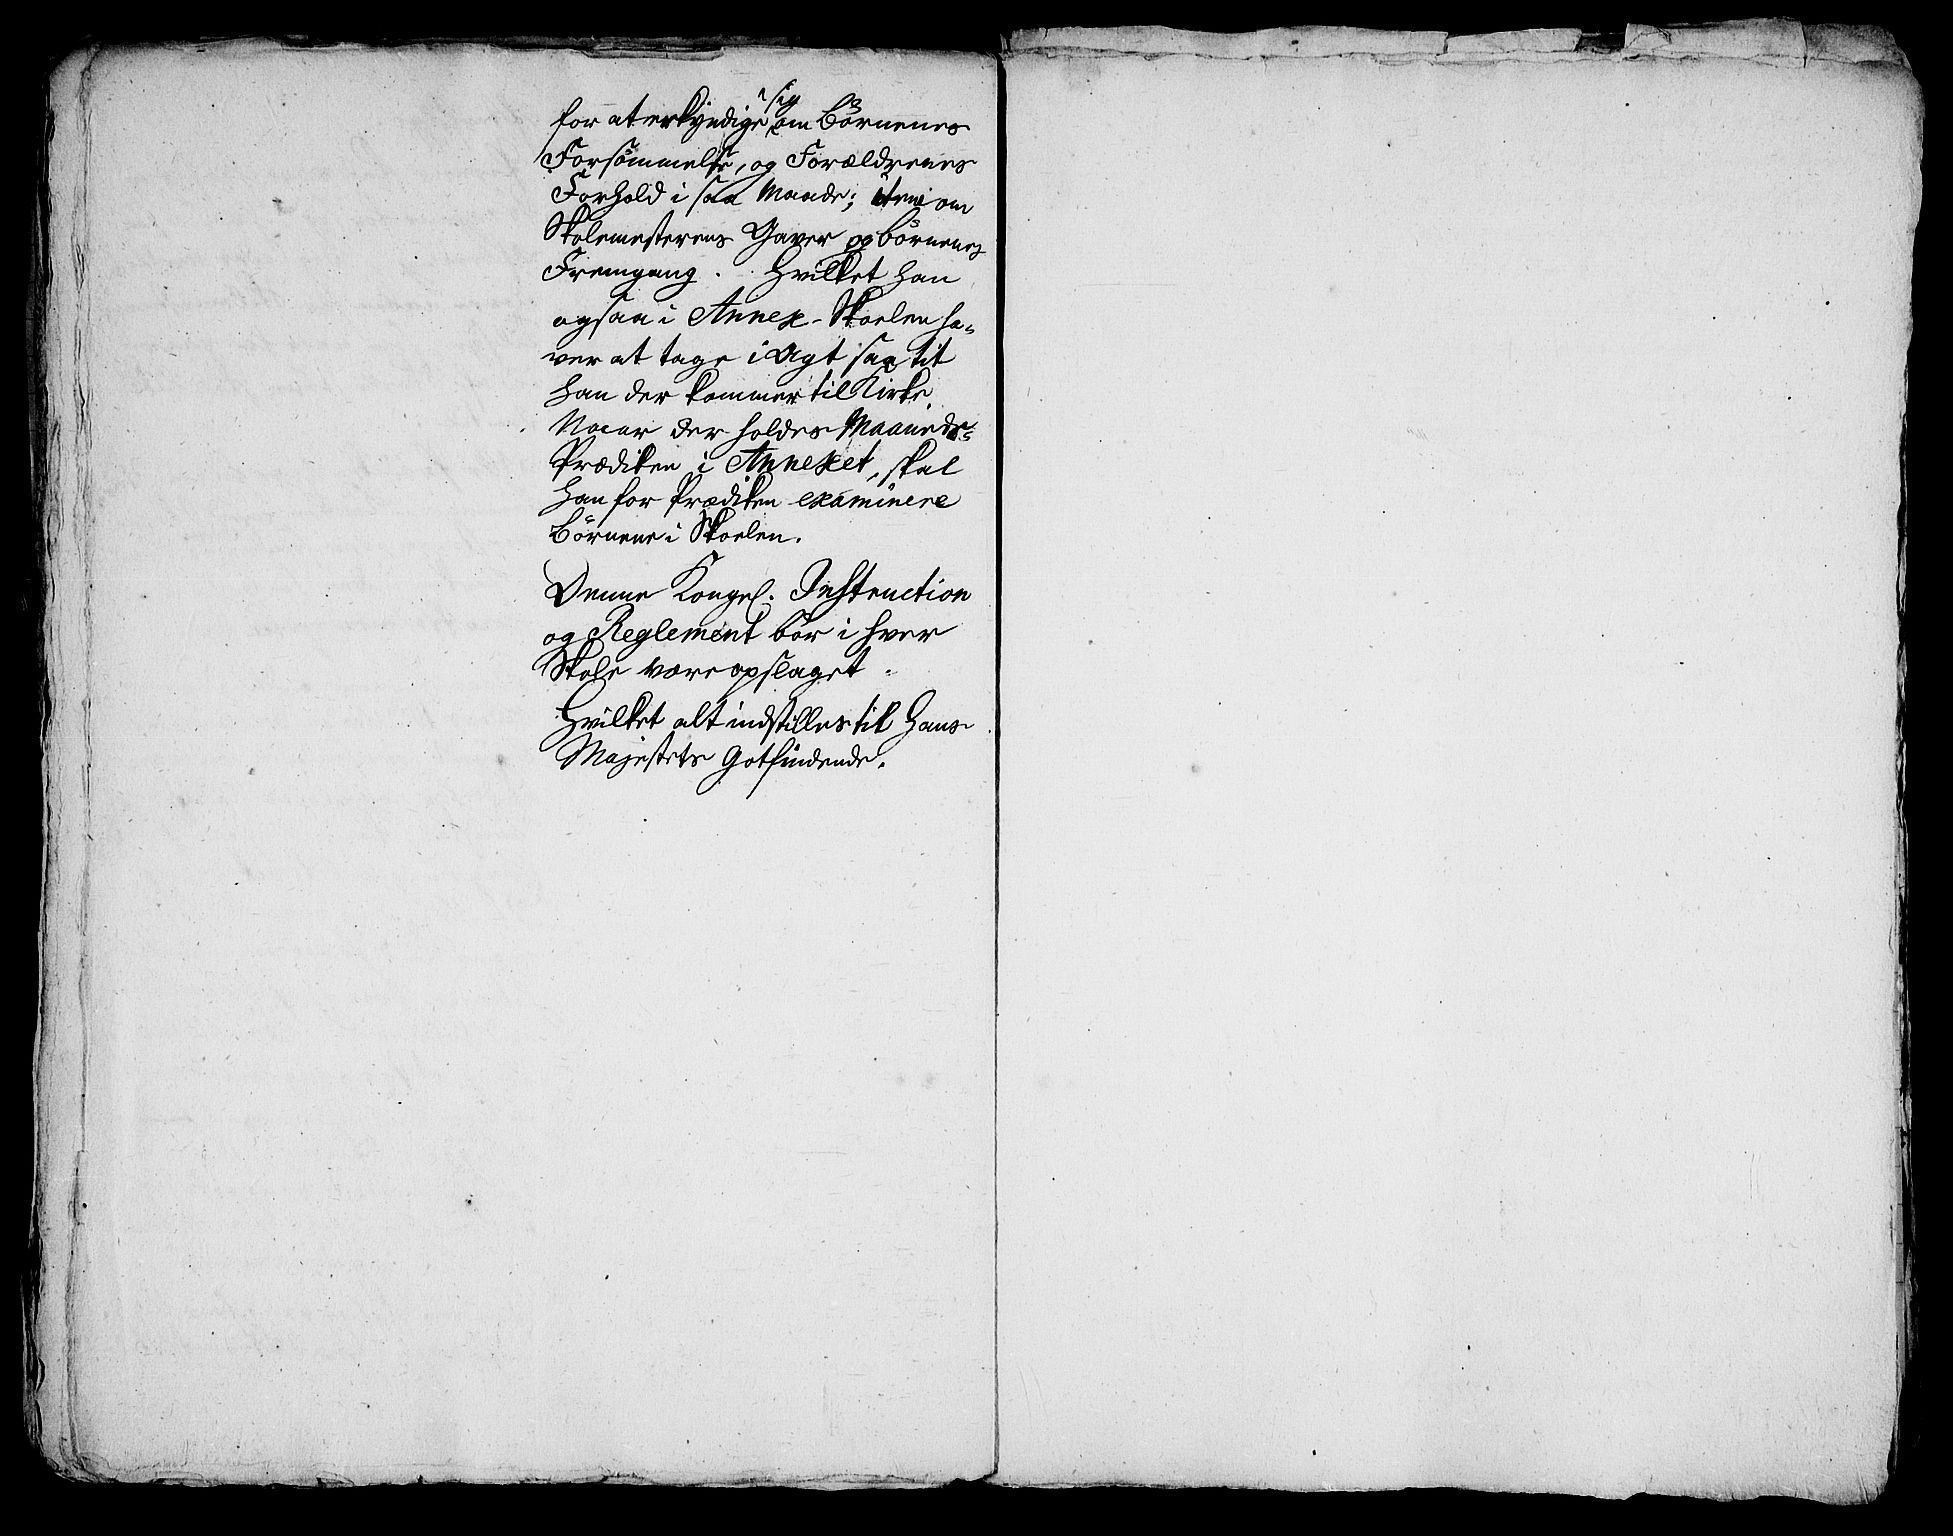 for at erkyndige sig om Börnenes
Forsömmelse, og Forældrenes
Forhold i saa Maade; item om
Skolemesterens Gaver og börnenes
Fremgang. Hvilket han
ogsaa i Annex-Skoelen ha-
ver at tage i Agt saa tit
han der kommer til Kirke.
Naar der holdes Maaneds-
Prædiken i Annexet, skal
han for Prædiken examinere
Börnene i Skoelen.
Denne Kongel. Instruction
og Reglement bör i hver
Skole være opslaget.
Hvilket alt indstilles til Hans
Majestets Gotfindende.